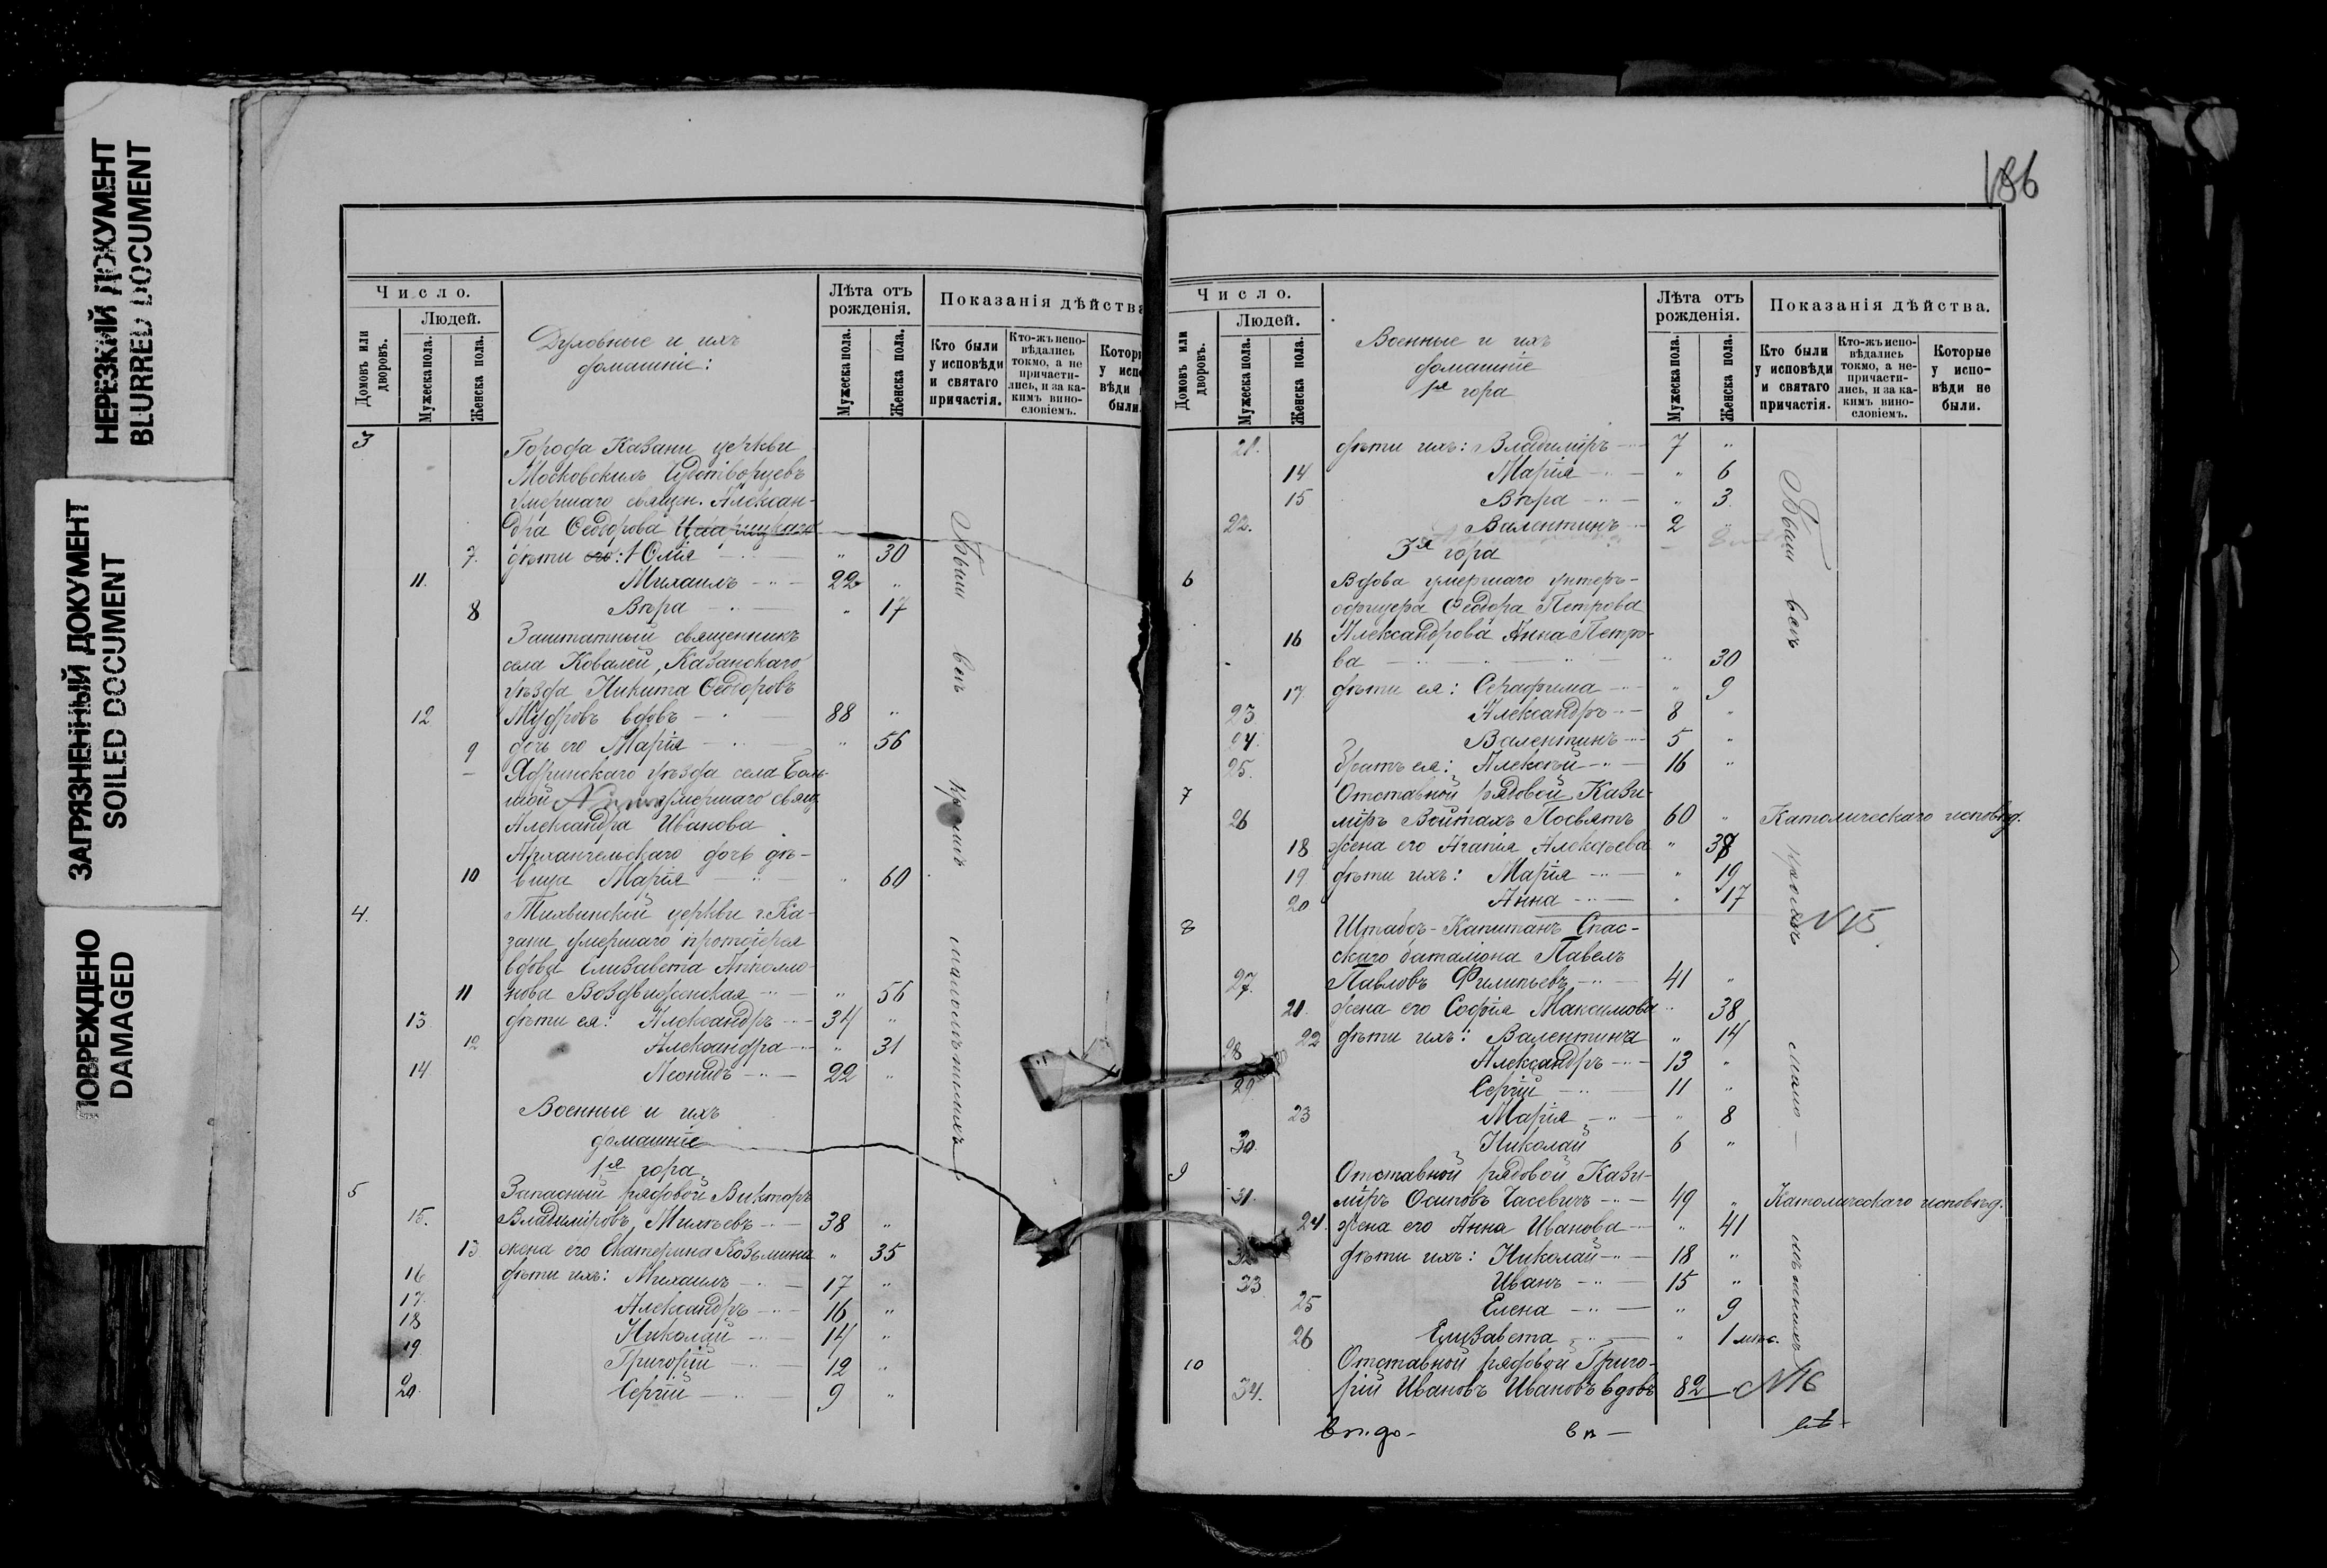 НЕРЕЗКИЙ ДОКУМЕНТ
BLURRED DOCUMENT
ЗАГРЯЗНЕННЫЙ ДОКУМЕНТ
SOILED DOCUMENT
ПОВРЕЖДЕНО
DAMAGED
Число.
Людей.
Домовъ или дворовъ.
Мужеска пола.
Женска пола.
Духовные и ихъ
домашніе:
Лѣта отъ рожденія.
Мужеска пола.
Женска пола.
Показанія дѣйства
Кто были у исповѣди и святаго причастія.
Кто-жъ исповѣдались токмо, а не причастились, и за какимъ винословіемъ.
3 Города Казани церкви
Московскихъ Чудотворцевъ
умершаго священ. Алексан-
дра Ѳеодорова
7. дѣти его: Юлія " 30
11. Михаилъ 22 "
8 Вѣра " 17
Заштатный священникъ
села Ковалей, Казанскаго
уѣзда Никита Ѳеодоровъ
12 Мудровъ вдовъ 88 "
9 дочь его Марія " 56
Ядринскаго уѣзда села Боль-
шой умершаго свящ.
Александра Иванова
Архангельскаго дочь дѣ-
10 вица Марія " 60
4. Тихвинской церкви г. Ка-
зани умершаго протоіерея
вдова Елизавета Аполло-
11 нова Воздвиженская " 56
13 дѣти ея: Александръ 34 "
12 Александра " 31
14 Леонидъ 22 "
Военные и ихъ
домашніе
1я гора
5 Запасный рядовой Викторъ
15. Владиміровъ Михѣевъ 38 "
13 жена его Екатерина Козьмина " 35
16 дѣти ихъ: Михаилъ 17 "
17. Александръ 16 "
18 Николай 14 "
19. Григорій 12 "
20. Сергій 9 "
Были всѣ кромѣ малолѣтнихъ
186
Число.
Людей.
Домовъ или дворовъ.
Мужеска пола.
Женска пола.
Военные и ихъ
домашніе
1я гора
Лѣта отъ рожденія.
Мужеска пола.
Женска пола.
Показанія дѣйства.
Кто были у исповѣди и святаго причастія.
Кто-жъ исповѣдались токмо, а не-причастились, и за какимъ винословіемъ.
Которые у исповѣди не были.
21. дѣти ихъ: Владиміръ 7 "
14 Марія " 6
15 Вѣра " 3
22. Валентинъ 2
3я гора
6 Вдова умершаго унтеръ-
офицера Ѳеодора Петрова
16 Александрова Анна Петро-
ва " 30
17. дѣти ея: Серафима " 9
23 Александръ 8 "
24. Валентинъ 5 "
25. братъ ея: Алексѣй 16 "
7 Отставной рядовой Кази-
26 міръ Войтахъ Посвятъ 60 " Католическаго исповѣд.
18 жена его Агапія Алексѣева " 38
19 дѣти ихъ: Марія " 19
20 Анна " 17
8 Штабсъ-Капитанъ Спас- N 15
скаго баталіона Павелъ
27. Павловъ Филипьевъ 41 "
21. жена его Софія Максимова " 38
22 дѣти ихъ: Валентина " 14
28 Александръ 13 "
29 Сергій 11 "
23 Марія " 8
30. Николай 6 "
9 Отставной рядовой Кази-
31 міръ Осиповъ Часевичъ 49 " Католическаго исповѣд.
24. жена его Анна Иванова " 41
32 дѣти ихъ: Николай 18 "
33 Иванъ 15 "
25 Елена " 9
26 Елизавета " 1 мѣс.
10 Отставной рядовой Григо-
34. рій Ивановъ Ивановъ вдовъ 82 N 16
Были всѣ кромѣ мало-лѣтнихъ